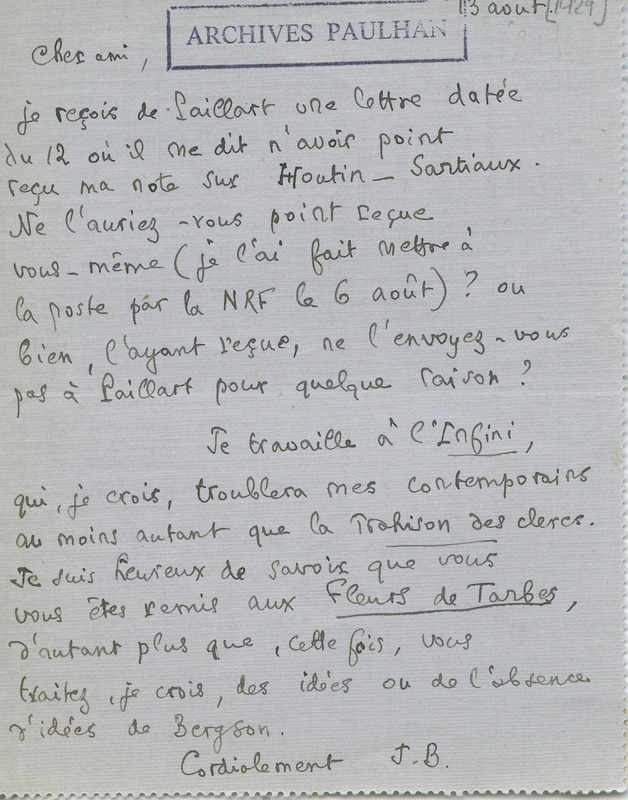 13 aout [1929]
ARCHIVES PAULHAN
Cher ami,
je reçois de Paillart une lettre datée
du 12 où il me dit n'avoir point
reçu ma note sur Houtin - Sartiaux.
Ne l'auriez-vous point reçue
vous-même (je l'ai fait mettre à
la poste par la NRF le 6 août) ? ou
bien, l'ayant reçue, ne l'envoyez-vous
pas à Paillart pour quelque raison ?
Je travaille à l'Infini,
qui, je crois, troublera mes contemporains
au moins autant que la Trahison des clercs.
Je suis heureux de savoir que vous
vous êtes remis aux Fleurs de Tarbes,
d'autant plus que, cette fois, vous
traitez, je crois, des idées ou de l'absence
d'idées de Bergson.
Cordialement J.B.